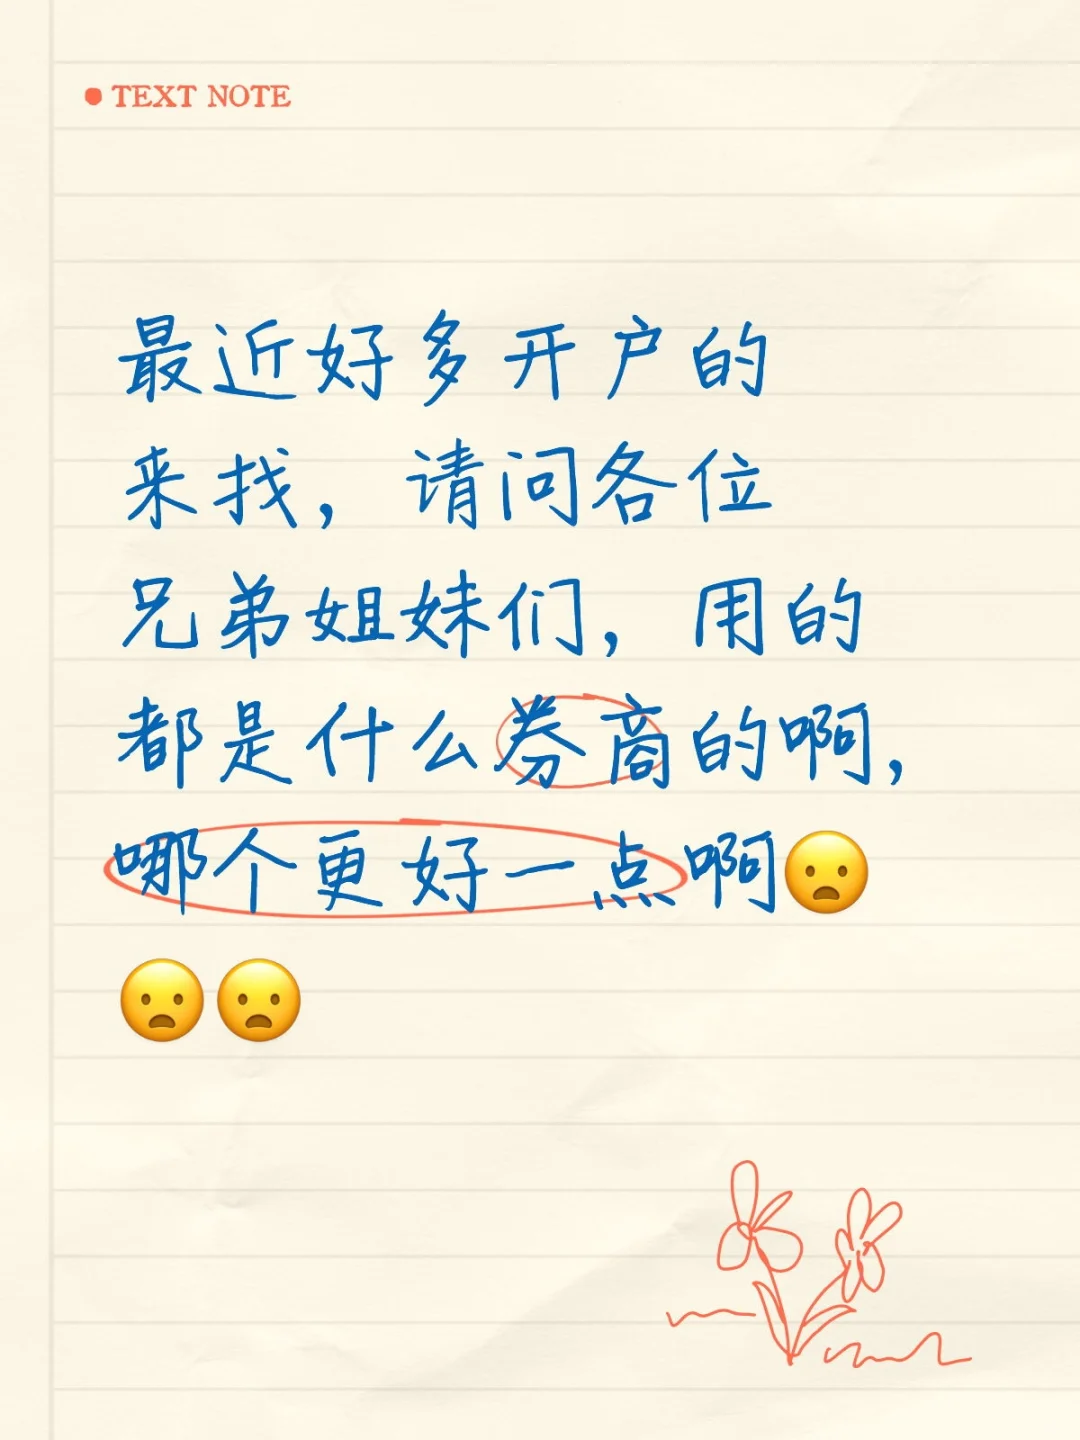 TEXT NOTE
最近好多开户的
来找，请问各位
兄弟姐妹们，用的
都是什么券商的啊，
哪个更好一点啊😦
😦😦